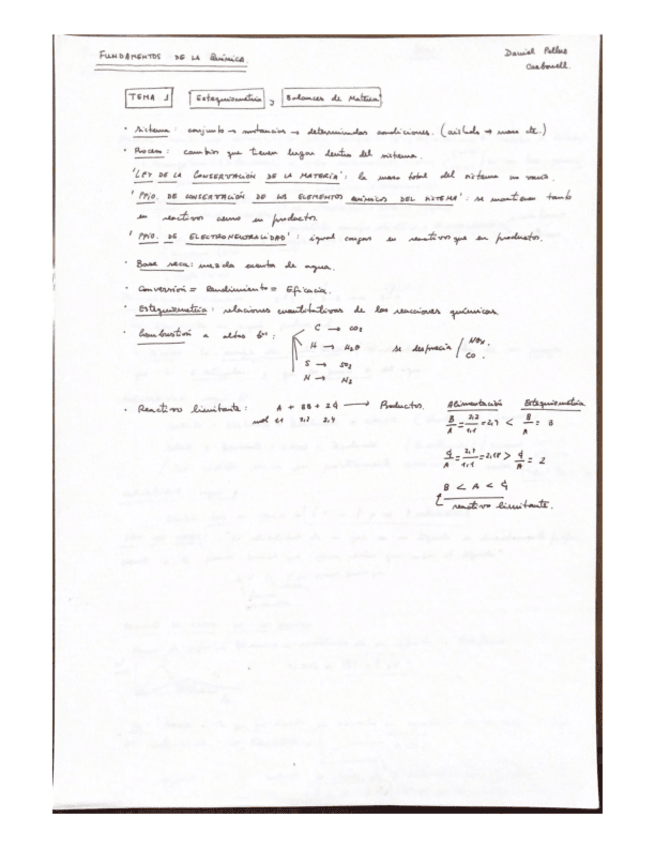 FUNDAMENTOS DE LA QUÍMICA.
Daniel
Carbonell.
TEMA 1 Estequiometría y Balances de Materia
· Sistema: conjunto → sustancias → determinadas condiciones. (aislado → masa cte.)
· Proceso: cambios que tienen lugar dentro del sistema.
'LEY DE LA CONSERVACIÓN DE LA MATERIA': la masa total del sistema no varía.
'PPIO. DE CONSERVACIÓN DE LOS ELEMENTOS QUÍMICOS DEL SISTEMA': se mantienen tanto
en reactivos como en productos.
'PPIO. DE ELECTRONEUTRALIDAD': igual cargas en reactivos que en productos.
· Base seca: mezcla exenta de agua.
· Conversión = Rendimiento = Eficacia.
· Estequiometría: relaciones cuantitativas de las reacciones químicas.
· Combustión a altas :
C → CO2
H → H2O
S → SO2
N → N2
se desprecia / NOx.
CO.
· Reactivo limitante: A + 3B + 2C → Productos.
mol 1,1 3,2 2,4
Alimentación Estequiometría
B/A = 3,2/1,1 = 2,9 < B/A = 3
C/A = 2,4/1,1 = 2,18 > C/A = 2
B < A < C
reactivo limitante.